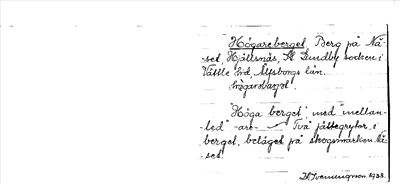 Högareberget, Berg på Nä-
set, Hjällsnäs, St Lundby socken i
Vättle hd, Älfsborgs län.
"Höga berget" med "mellan-
led" -are- Två jättegrytor i
berget, beläget på skogsmarken Nä-
set.
1933.